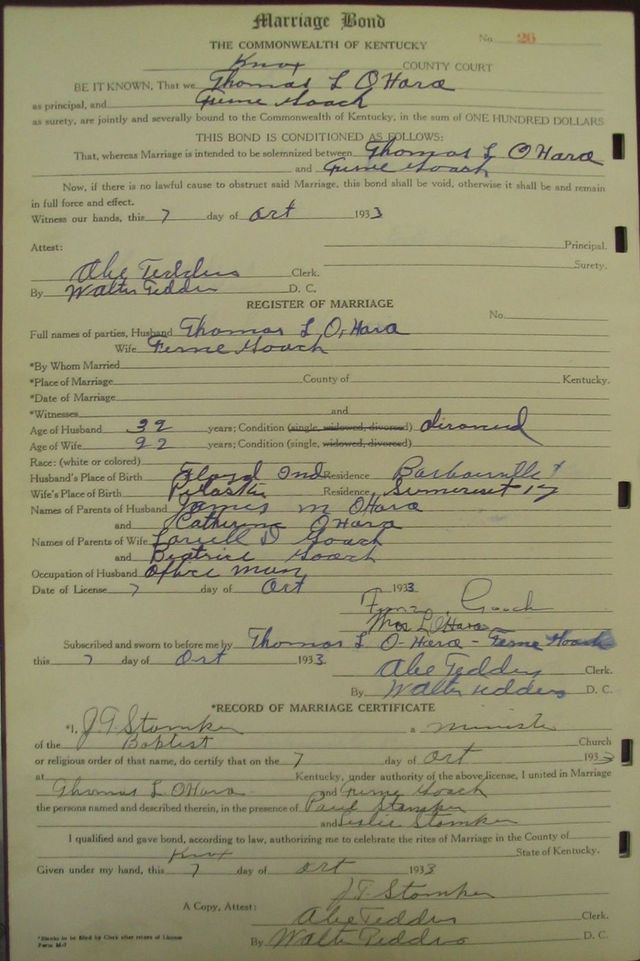 Marriage Bond
No. 26
THE COMMONWEALTH OF KENTUCKY
Knox COUNTY COURT
BE IT KNOWN, That we Thomas L O'Hara
as principal, and Ferne Gooch
as surety, are jointly and severally bound to the Commonwealth of Kentucky, in the sum of ONE HUNDRED DOLLARS
THIS BOND IS CONDITIONED AS FOLLOWS:
That, whereas Marriage is intended to be solemnized between Thomas L O'Hara
and Ferne Gooch
Now, if there is no lawful cause to obstruct said Marriage, this bond shall be void, otherwise it shall be and remain
in full force and effect.
Witness our hands, this 7 day of Oct 1933
Principal.
Attest:
Surety.
Abe Tedders Clerk.
By Walter Tedders D. C.
REGISTER OF MARRIAGE
No.
Full names of parties, Husband Thomas L O'Hara
Wife Ferne Gooch
*By Whom Married
*Place of Marriage County of Kentucky.
*Date of Marriage
*Witnesses and
Age of Husband 32 years; Condition (single, widowed, divorced) divorced
Age of Wife 22 years; Condition (single, widowed, divorced)
Race: (white or colored)
Husband's Place of Birth Floyd Ind Residence Barbourville
Wife's Place of Birth Pulaski Residence, Somerset Ky
Names of Parents of Husband James M O'Hara
and Catherine O'Hara
Names of Parents of Wife D Gooch
and Beatrice Gooch
Occupation of Husband Office man
Date of License 7 day of Oct 1933
Gooch
L O'Hara
Subscribed and sworn to before me by Thomas L O-Hara - Ferne Gooch
this 7 day of Oct 1933 Abe Tedders Clerk.
By Walter Tedders D. C.
*RECORD OF MARRIAGE CERTIFICATE
*I, J.T. Stamper a minister
of the Baptist Church
or religious order of that name, do certify that on the 7 day of Oct 1933
at Kentucky, under authority of the above license, I united in Marriage
Thomas L. O'Hara and Ferne Gooch
the persons named and described therein, in the presence of Paul Stamper
and Leslie Stamper
I qualified and gave bond, according to law, authorizing me to celebrate the rites of Marriage in the County of
Knox State of Kentucky.
Given under my hand, this 7 day of Oct 1933
J.T. Stamper
A Copy, Attest: Abe Tedders Clerk.
By Walter Tedders D. C.
*Blanks to be filled by Clerk after return of License